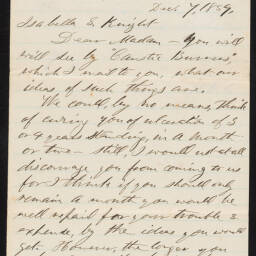 Dec 7, 1859.
Isabella E. Knight
Dear Madam - You will
will see by "Caustic Burners",
which I sent to you, what our
ideas, of such things are.
We could, by no means, think
of curing you of ulceration of 3
or 4 years standing, in a month
or two - still, I would not at all
discourage you from coming to us
for I think if you should only
remain a month you would be
well repaid for your trouble &
expense, by the ideas you would
get. However, the longer you